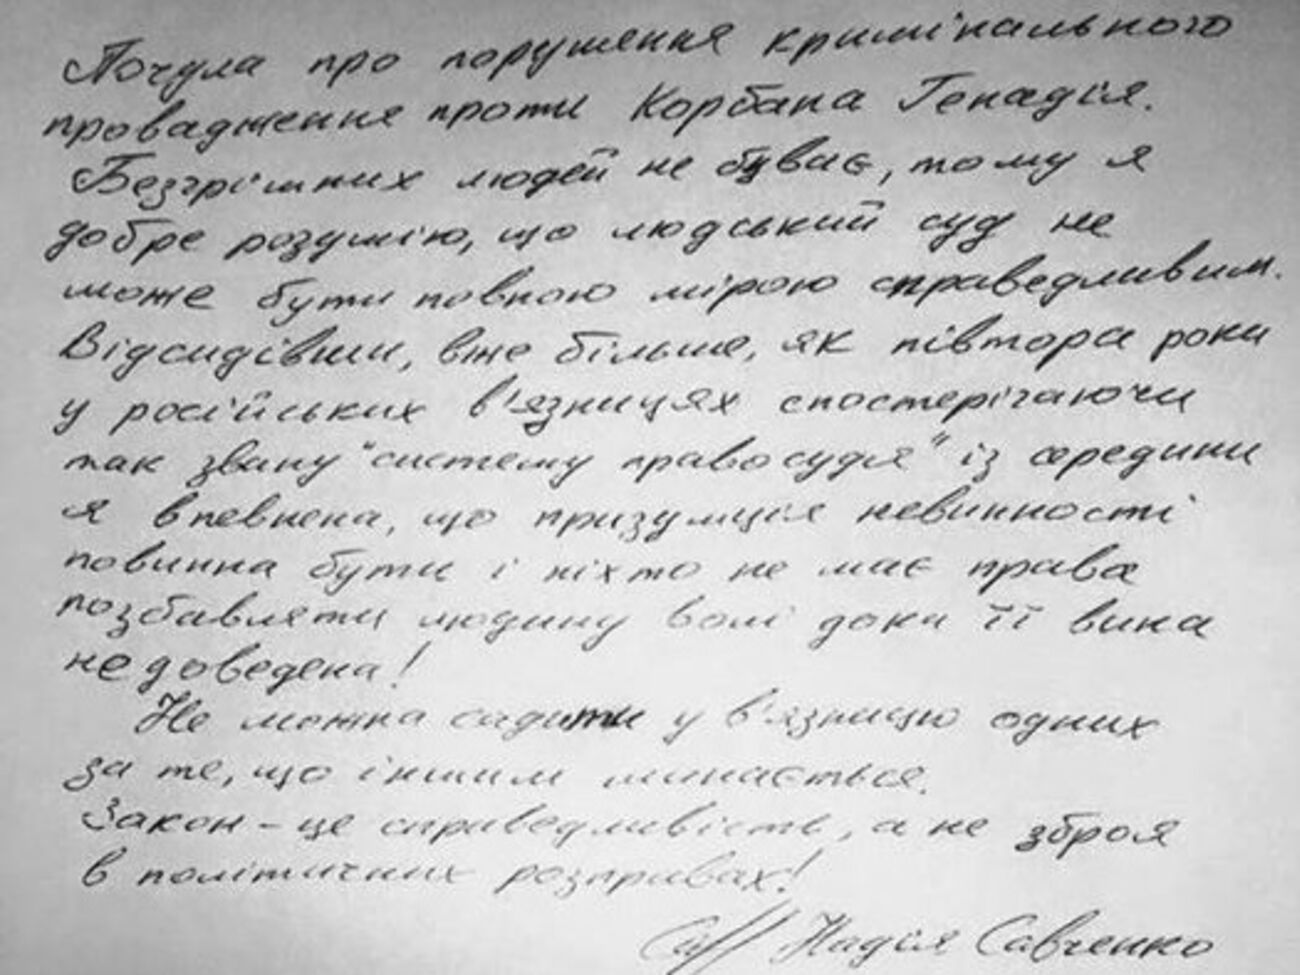 Почула про порушення кримінального
провадження проти Корбана Генадія.
Безгрішних людей не буває, тому я
добре розумію, що людський суд не
може бути повною мірою справедливим.
Відсидівши, вже більше, як півтора роки
у російських в'язницях спостерігаючи
так звану "систему правосудія" із середини
я впевнена, що призумпція невинності
повинна бути і ніхто не має права
позбавляти людину волі доки її вина
не доведена!
Не можна садити у в'язницю одних
за те, що іншим минається.
Закон – це справедливість, а не зброя
в політичних розправах!
Надія Савченко